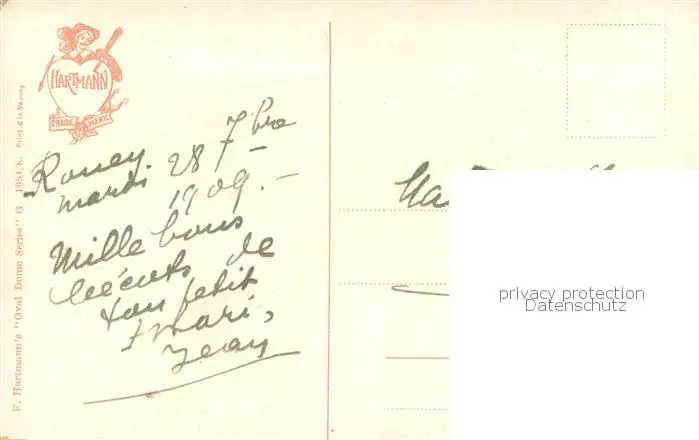 HARTMANN
TRADE MARK
F. Hartmann's "Oval Dome Series" G. 1051/8. Printed in Saxony
Rouen.
mardi 28 7bre
1909. -
Mille bons
bécots de
ton petit
mari,
Jean
privacy protection
Datenschutz